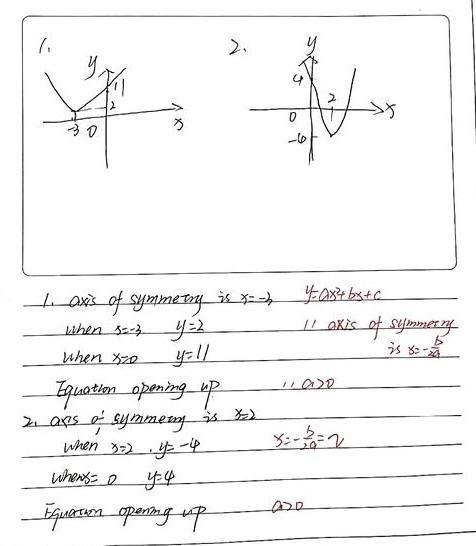 1.
y
11
2
-3 0
x
2.
y
4
2
0
x
-4
1. axis of symmetry is x=-3 y=ax²+bx+c
when x=-3 y=2 '' axis of symmetry
is x=-b/2a
when x=0 y=11
Equation opening up '' a>0
2. axis of symmetry is x=2
when x=2, y=-4 x=-b/2a=2
when x=0 y=4
Equation opening up a>0